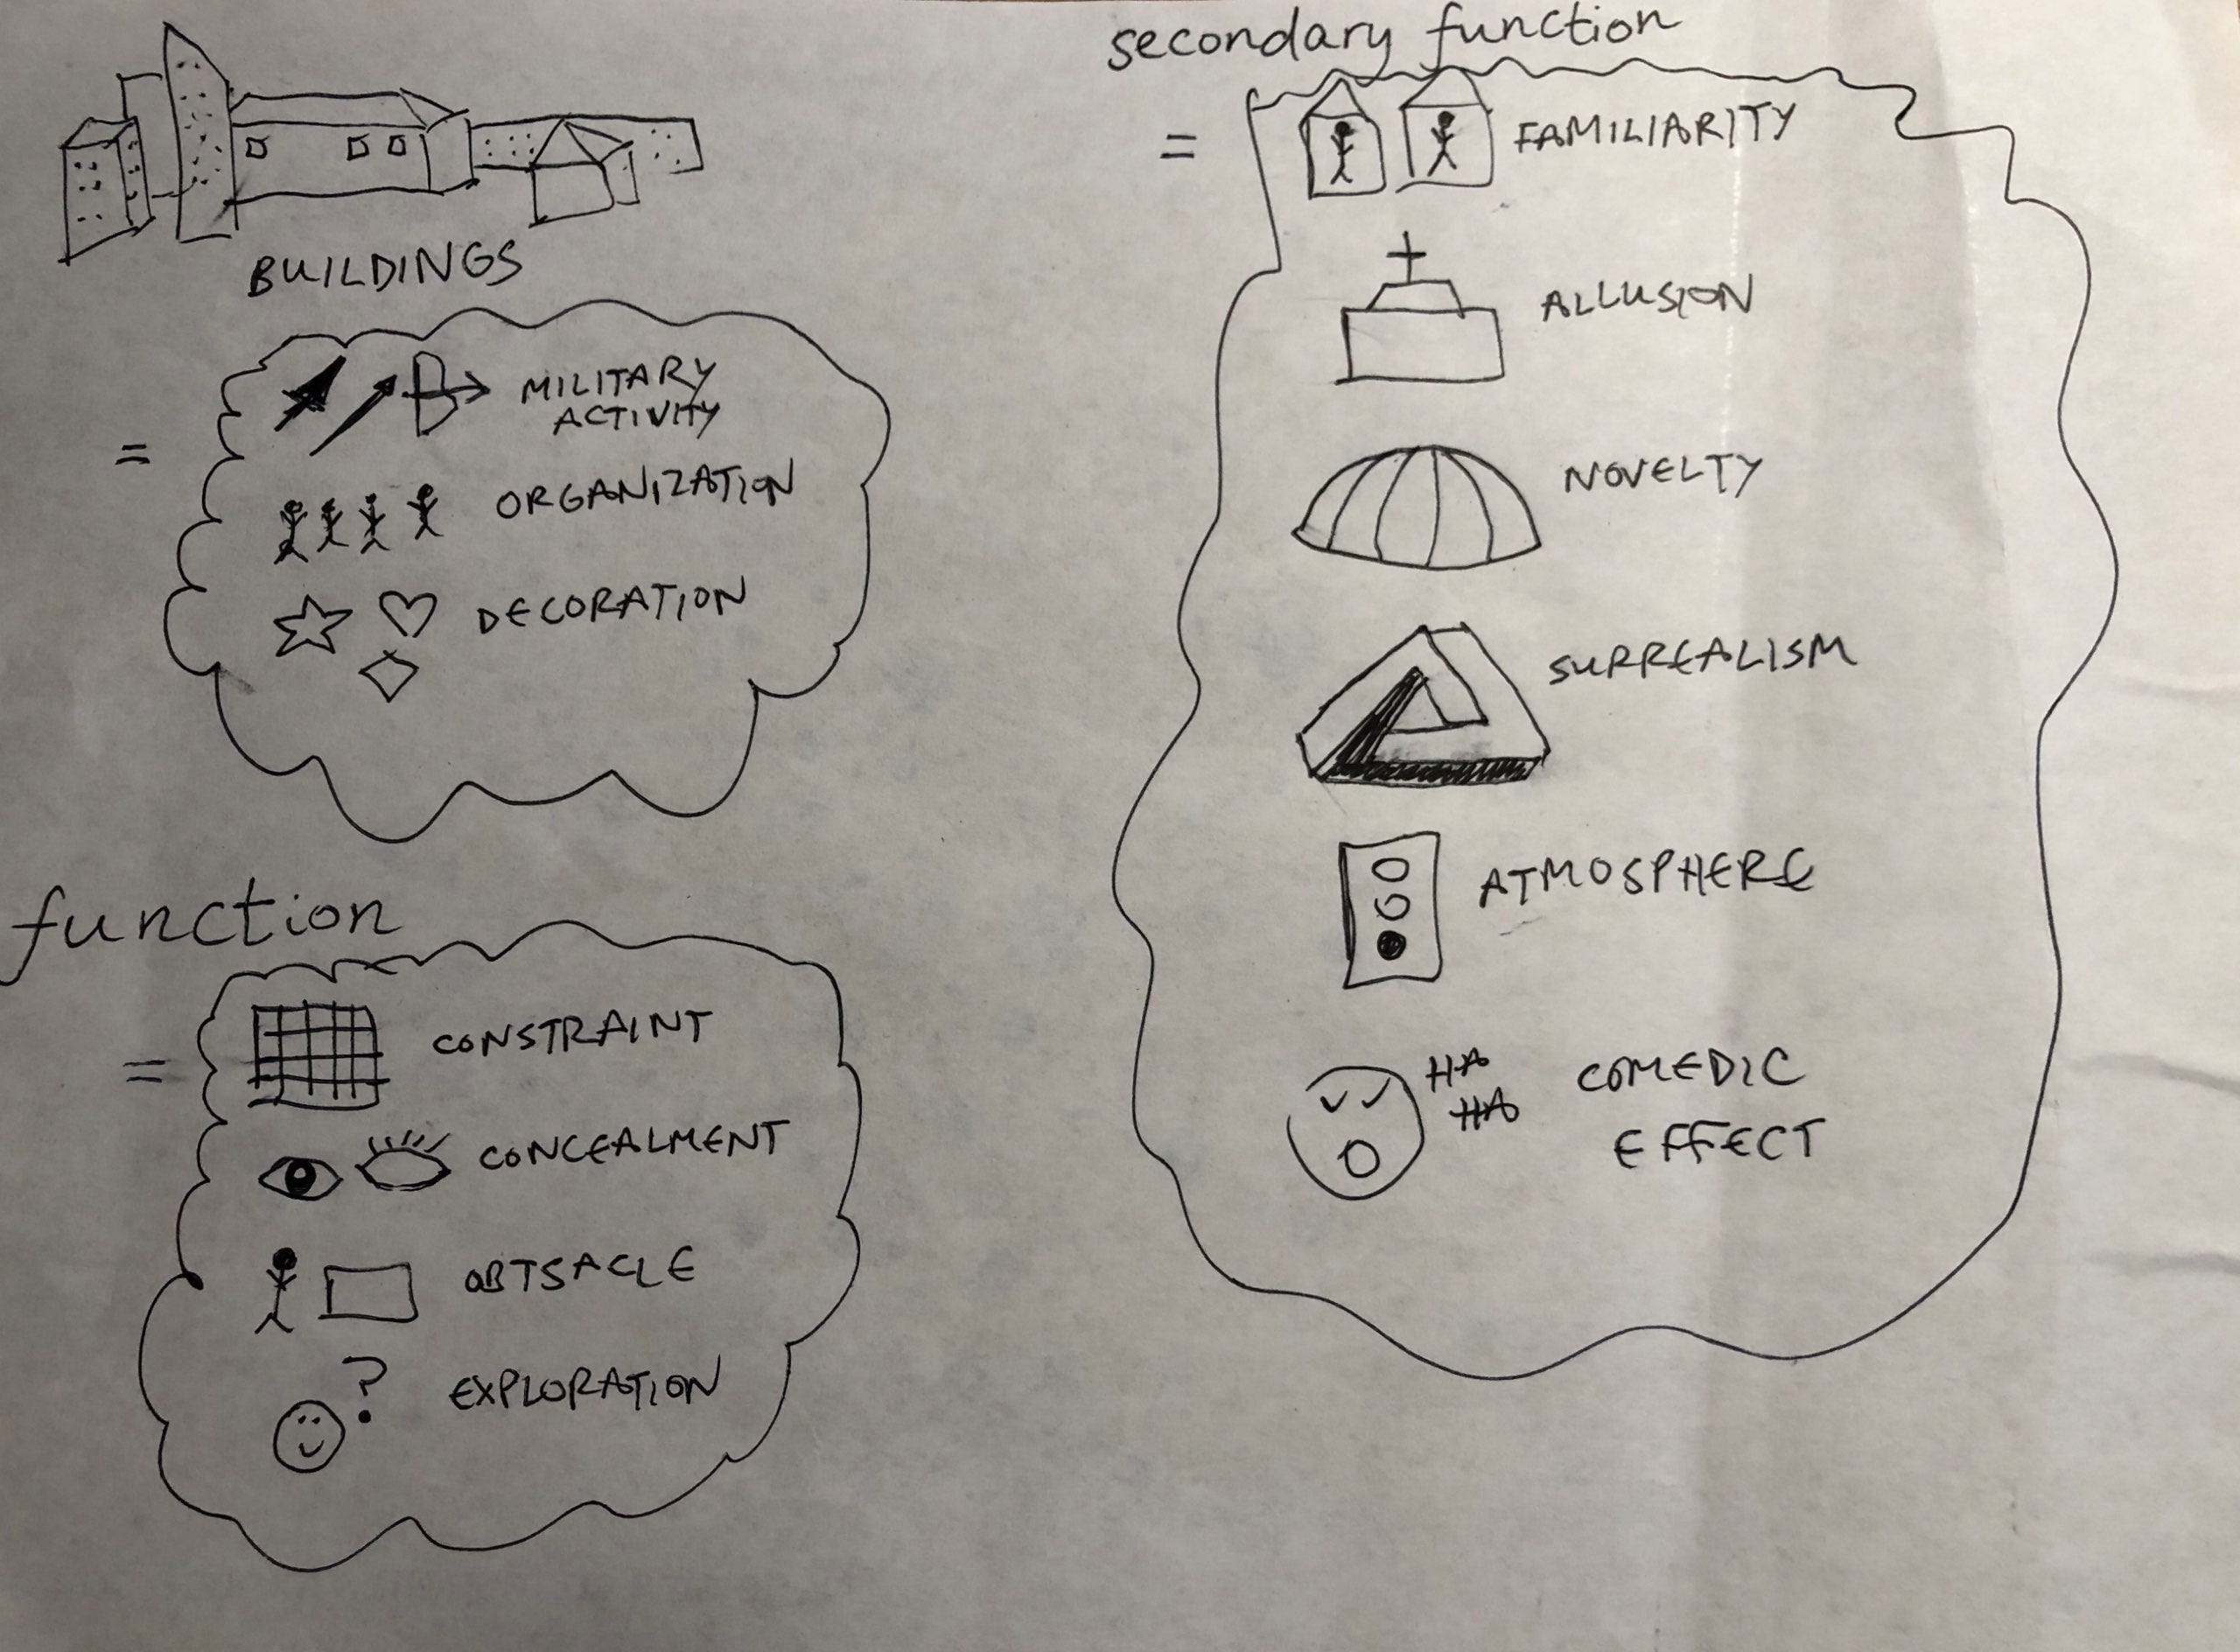 BUILDINGS
=
MILITARY
ACTIVITY
ORGANIZATION
DECORATION
function
=
CONSTRAINT
CONCEALMENT
OBTSACLE
?
EXPLORATION
secondary function
=
FAMILIARITY
ALLUSION
NOVELTY
SURREALISM
ATMOSPHERE
HA
HA
COMEDIC
EFFECT